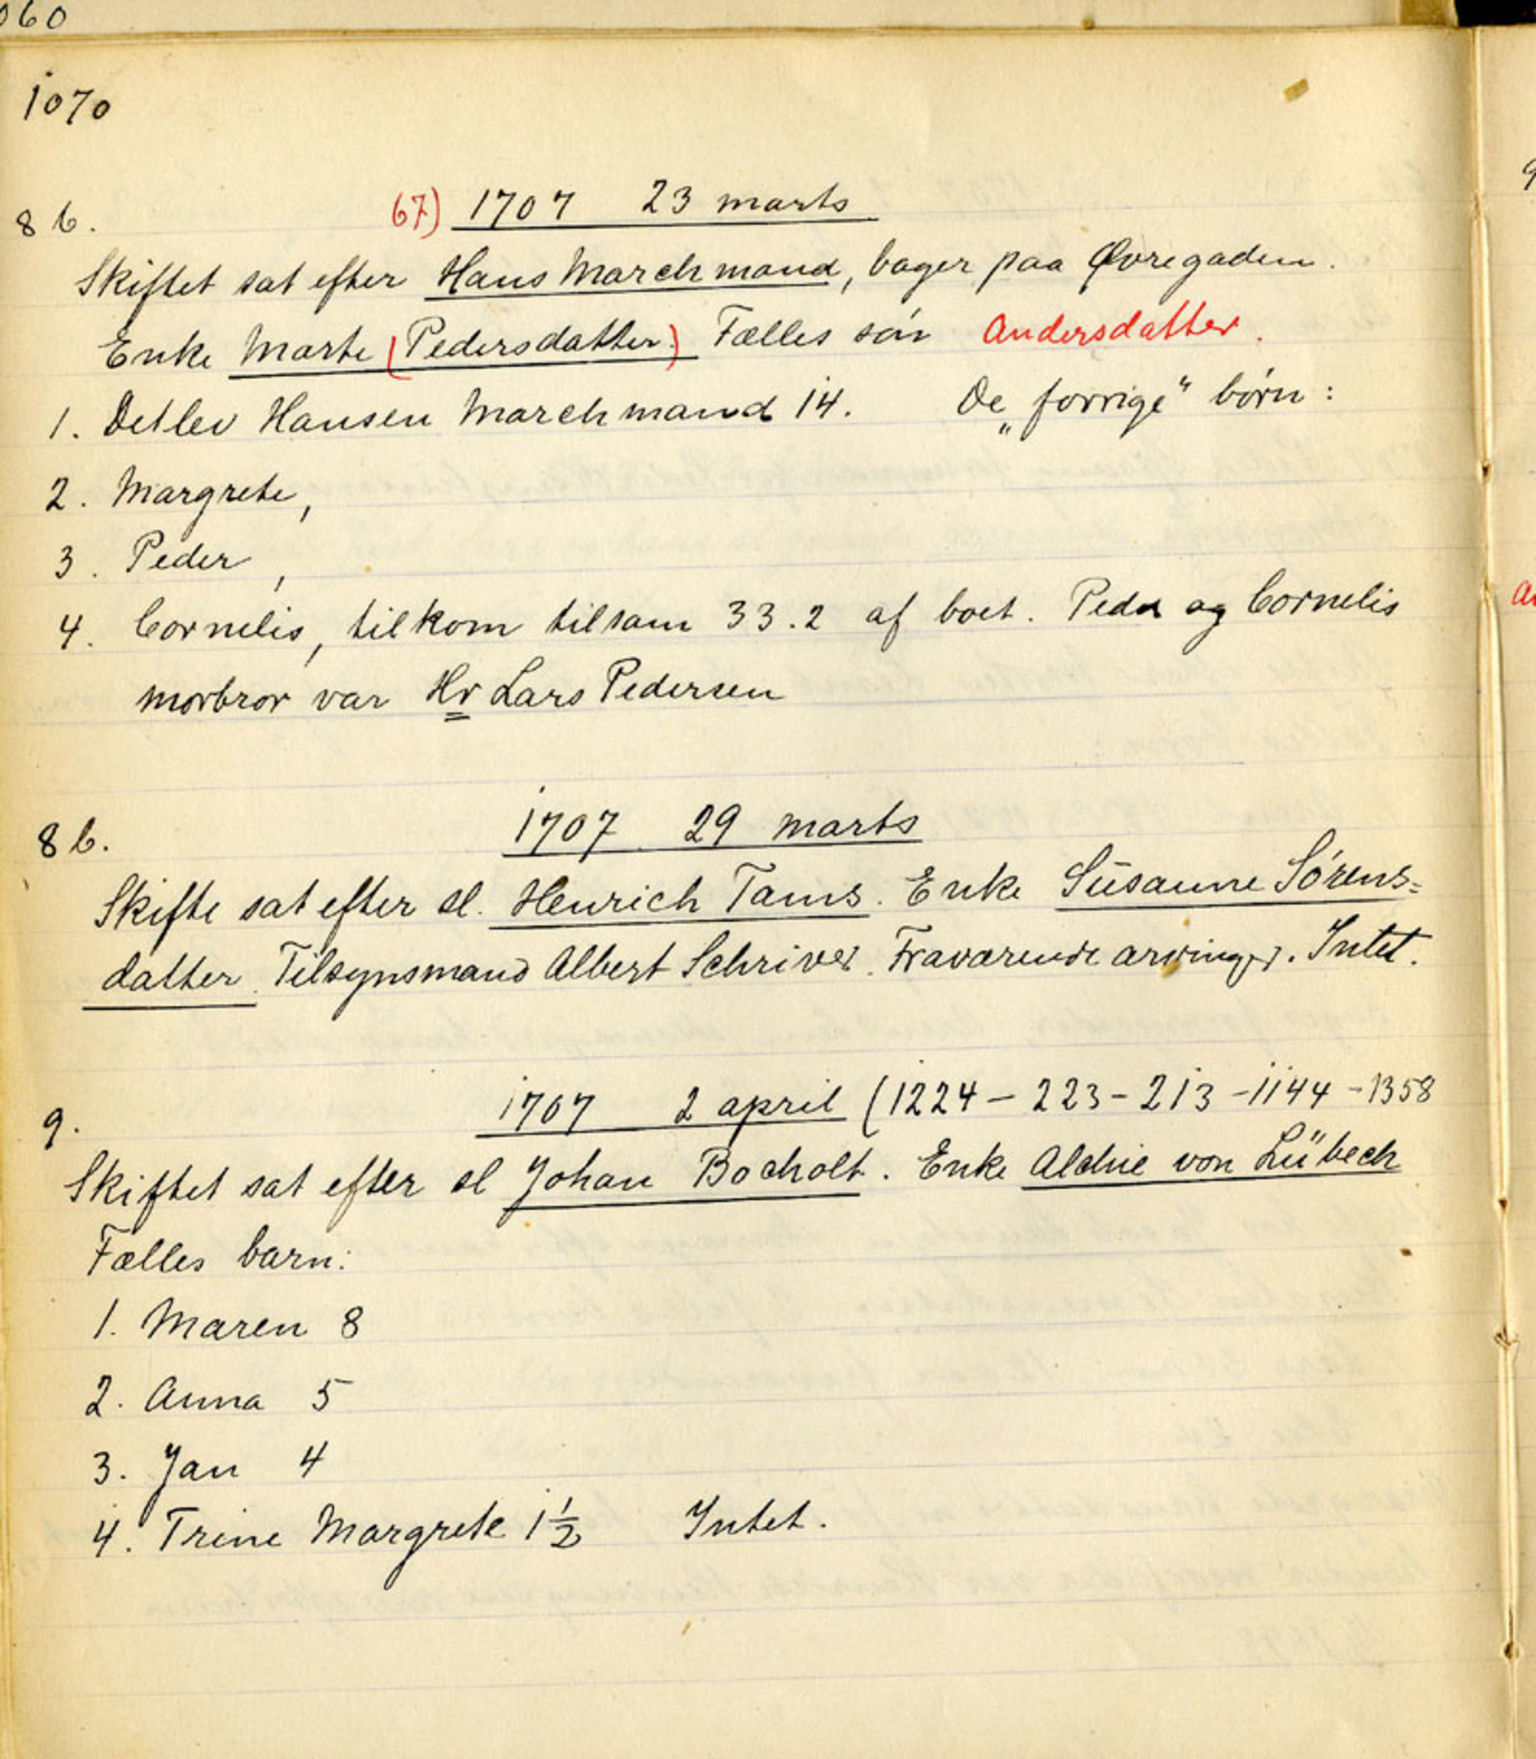 060
1070
8 b. 67) 1707 23 marts
Skiftet sat efter Hans Marchmand, bager paa Øvregaden.
Enke Marte (Pedersdatter) Fælles søn Andersdatter.
1. Detlev Hansen Marchmand 14. De „forrige“ børn:
2. Margrete,
3. Peder,
4. Cornelis, tilkom tilsam 33.2 af boet. Peder og Cornelis
morbror var Hr Lars Pedersen
8 b. 1707 29 marts
Skifte sat efter sl. Henrich Tams. Enke Susanne Sörens=
datter. Tilsynsmand Albert Schriver. Fraværende arvinger. Intet.
9. 1707 2 april (1224 – 223 – 213 – 1144 – 1358
Skiftet sat efter sl Johan Bocholt. Enke Alchie von Lübech
Fælles barn:
1. Maren 8
2. Anna 5
3. Jan 4
4. Trine Margrete 1½ Intet.